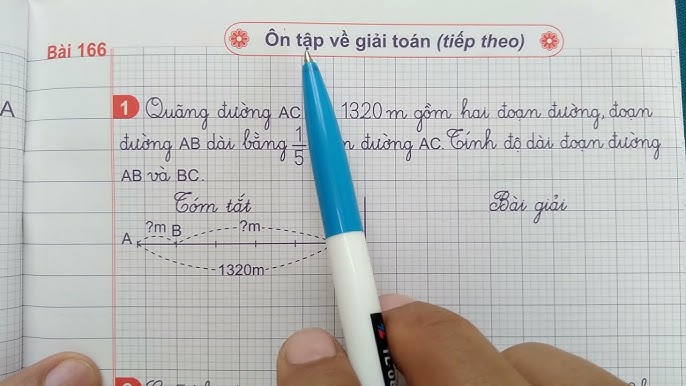 Bài 166
Ôn tập về giải toán (tiếp theo)
A
1 Quãng đường AC 1320m gồm hai đoạn đường, đoạn
đường AB dài bằng 1/5 đường AC. Tính độ dài đoạn đường
AB và BC.
Tóm tắt
Bài giải
?m ?m
A B
1320m